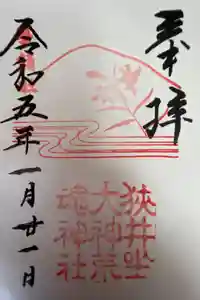 奉拝
狭井坐
大神荒
魂神社
令和五年一月廿一日